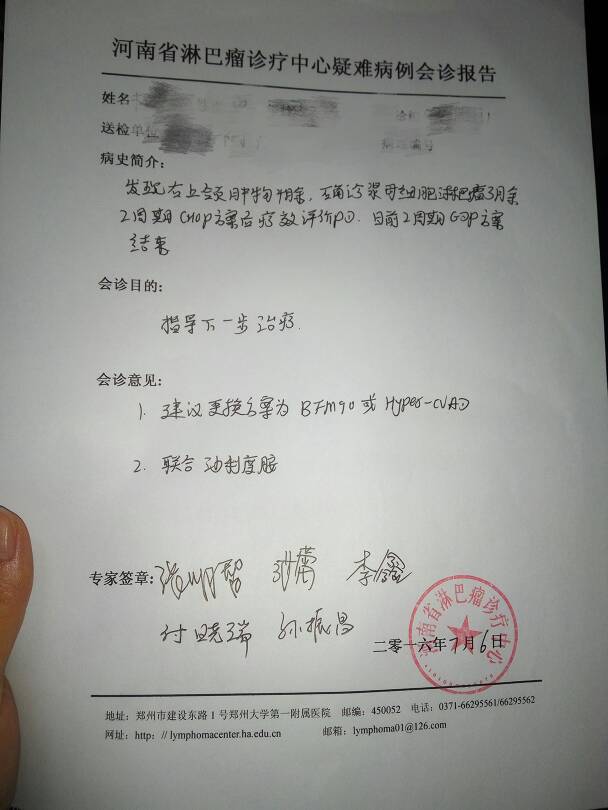 河南省淋巴瘤诊疗中心疑难病例会诊报告
姓名
送检单位
病史简介:
发现右上颌肿物月余,确诊浆母细胞淋巴瘤3月余
2周期CHOP方案后疗效评价PD.目前2周期GDP方案
结束
会诊目的:
指导下一步治疗.
会诊意见:
1. 建议更换方案为 BFM90 或 Hyper-CVAD
2. 联合沙利度胺
专家签章: 张明智 李鑫
付晓瑞 孙振昌
二零一六年7月6日
河南省淋巴瘤诊疗中心
地址:郑州市建设东路1号郑州大学第一附属医院 邮编:450052 电话:0371-66295561/66295562
网址:http://lymphomacenter.ha.edu.cn 邮箱:lymphoma01@126.com